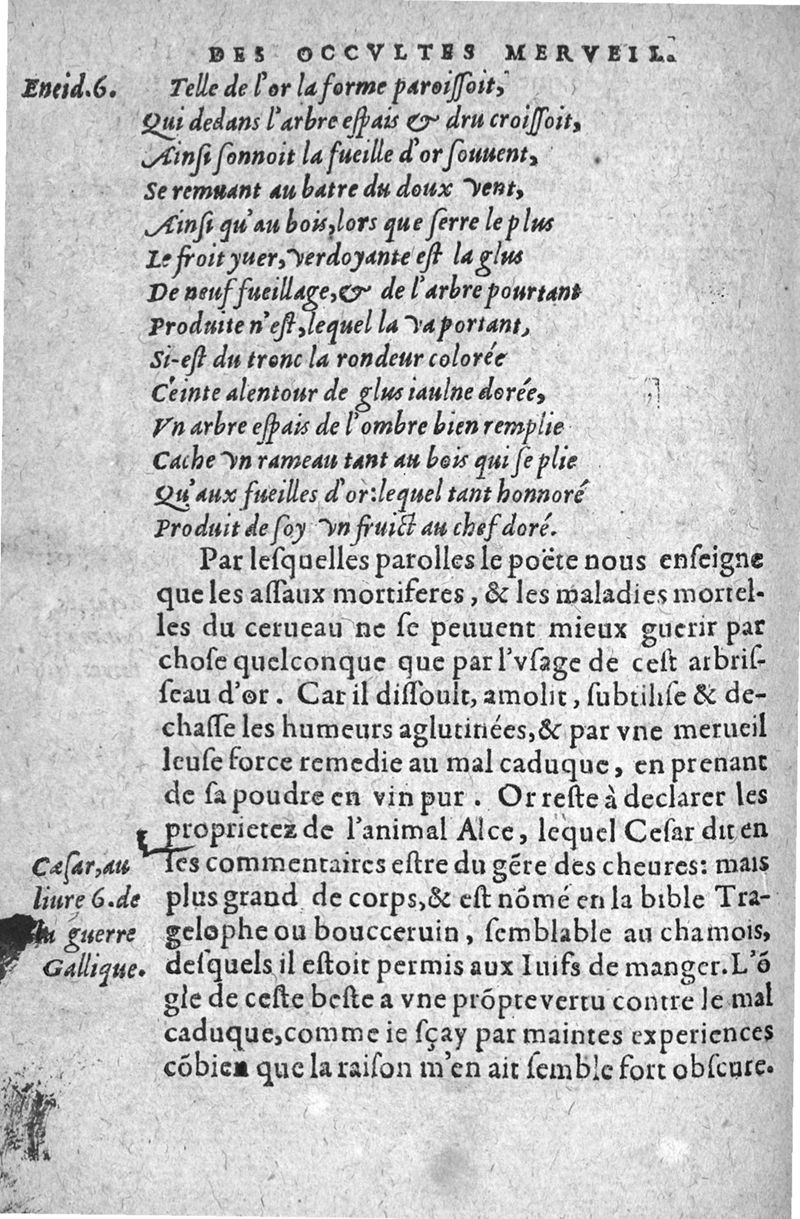 DES OCCVLTES MERVEIL.
Eneid.6.
Telle de l'or la forme paroiſſoit,
Qui dedans l'arbre eſpais & dru croiſſoit,
Ainſi ſonnoit la fueille d'or ſouuent,
Se remuant au batre du doux vent,
Ainſi qu'au bois, lors que ſerre le plus
Le froit yuer, verdoyante eſt la glus
De neuf fueillage, & de l'arbre pourtant
Produite n'eſt, lequel la va portant,
Si-eſt du tronc la rondeur colorée
Ceinte alentour de glus iaulne dorée,
Vn arbre eſpais de l'ombre bien remplie
Cache vn rameau tant au bois qui ſe plie
Qu'aux fueilles d'or: lequel tant honnoré
Produit de ſoy vn fruict au chef doré.
Par leſquelles parolles le poëte nous enſeigne
que les aſſaux mortiferes, & les maladies mortel-
les du cerueau ne ſe peuuent mieux guerir par
choſe quelconque que par l'vſage de ceſt arbriſ-
ſeau d'or. Car il diſſoult, amolit, ſubtiliſe & de-
chaſſe les humeurs aglutinées, & par vne merueil
leuſe force remedie au mal caduque, en prenant
de ſa poudre en vin pur. Or reſte à declarer les
proprietez de l'animal Alce, lequel Ceſar dit en
ſes commentaires eſtre du gēre des cheures: mais
plus grand de corps, & eſt nōmé en la bible Tra-
gelophe ou boucceruin, ſemblable au chamois,
deſquels il eſtoit permis aux Iuifs de manger. L'ō
gle de ceſte beſte a vne prōpte vertu contre le mal
caduque, comme ie ſçay par maintes experiences
cōbien que la raiſon m'en ait ſemble fort obſcure.
Cæſar, au
liure 6. de
la guerre
Gallique.